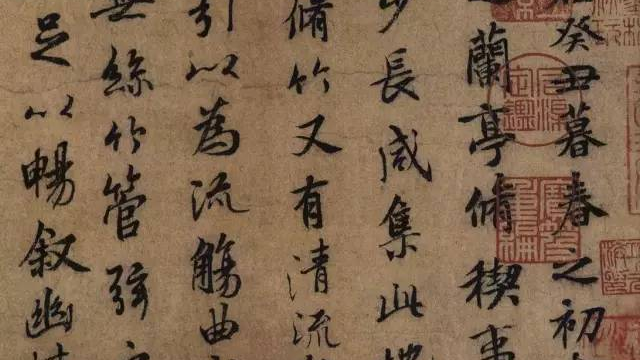 癸丑暮春之初
蘭亭脩稧事
少長咸集此地
脩竹又有清流
引以為流觴曲
無絲竹管弦之
足以暢叙幽情